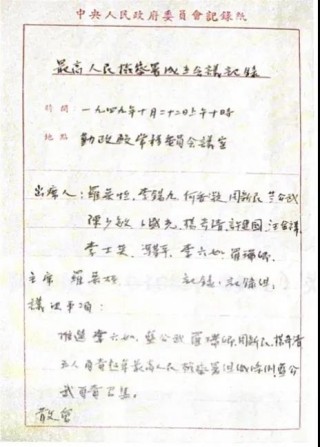 中央人民政府委員會記錄紙
最高人民檢察署成立會議記錄
時間 一九四九年十月二十二日上午十時
地點 勤政殿常務委員會議室
出席人:羅榮桓、李錫九 何香凝 周新民 藍公武
陳少敏、卜盛光、楊奇清、許建國、汪金祥、
李士英、馮基平、李六如、羅瑞卿、
主席 羅榮桓 記錄:
議決事項:
推選 李六如、藍公武 羅瑞卿、周新民、楊奇清
五人負責起草最高人民檢察署組織條例 藍公
武負責召集。
散會